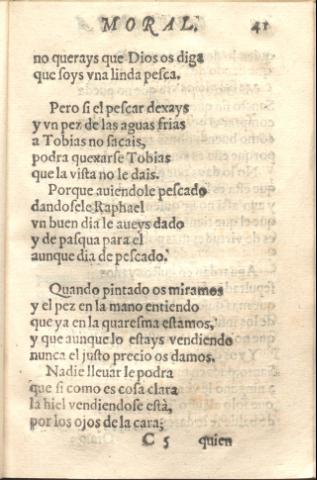 MORAL. 41
no querays que Dios os diga
que soys vna linda pesca.
Pero si el pescar dexays
y vn pez de las aguas frias
a Tobias no sacais,
podra quexarse Tobias
que la vista no le dais.
Porque auiendole pescado
dandosele Raphael
vn buen dia le aueys dado
y de pasqua para el
aunque dia de pescado.
Quando pintado os miramos
y el pez en la mano entiendo
que ya en la quaresma estamos,
y que aunque lo estays vendiendo
nunca el justo precio os damos.
Nadie lleuar le podra
que si como es cosa clara
la hiel vendiendose està,
por los ojos de la cara;
C 5 quien